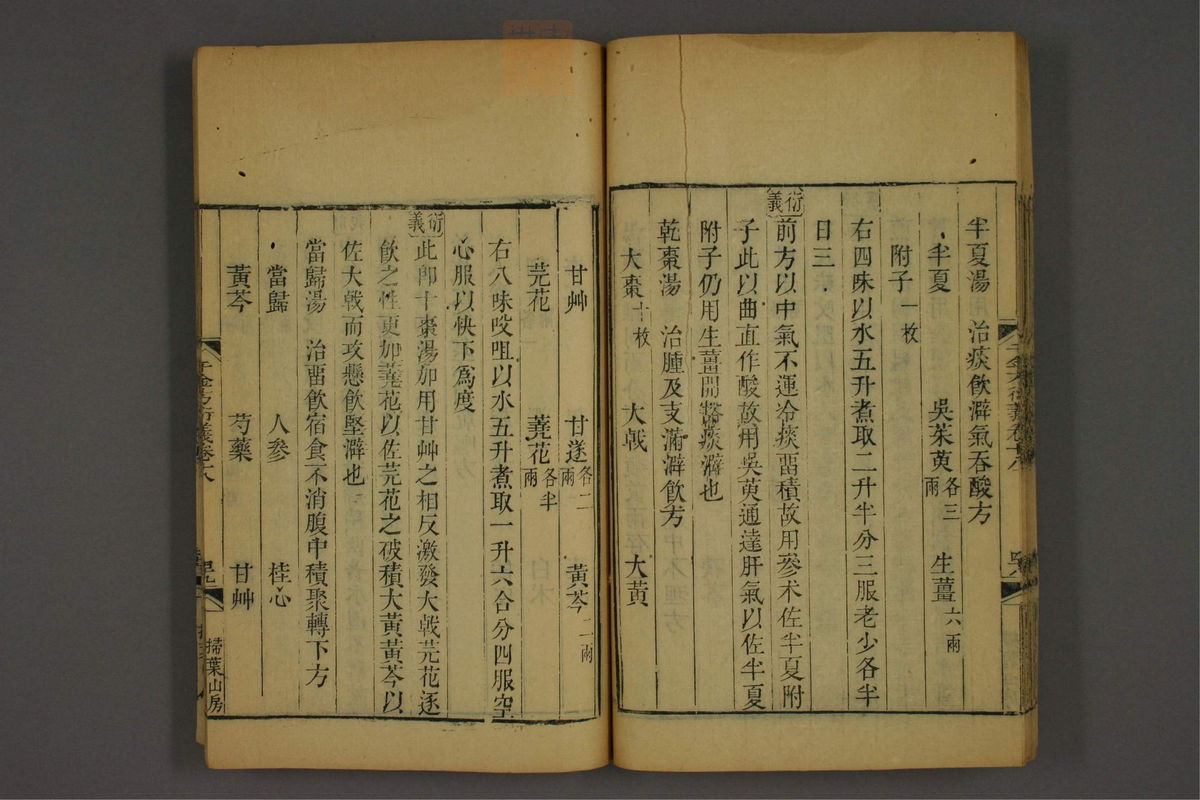 半夏湯　治痰飲澼氣吞酸方
半夏　吳茱萸各三兩　生薑六兩
附子一枚
右四味以水五升煮取二升半分三服老少各半
日三
衍義
前方以中氣不運冷痰畱積故用參术佐半夏附
子此以曲直作酸故用吳萸通達肝氣以佐半夏
附子仍用生薑開豁痰澼也
乾棗湯　治腫及支滿澼飲方
大棗十枚　大戟　大黃
甘艸　甘遂各二兩　黃芩二兩
芫花　蕘花各半兩
右八味㕮咀以水五升煮取一升六合分四服空
心服以快下爲度
衍義
此卽十棗湯加用甘艸之相反激發大戟芫花逐
飲之性更加蕘花以佐芫花之破積大黃黃芩以
佐大戟而攻懸飲堅澼也
當歸湯　治畱飲宿食不消腹中積聚轉下方
當歸　人參　桂心
黃芩　芍藥　甘艸
千金方衍義卷十八
掃葉山房